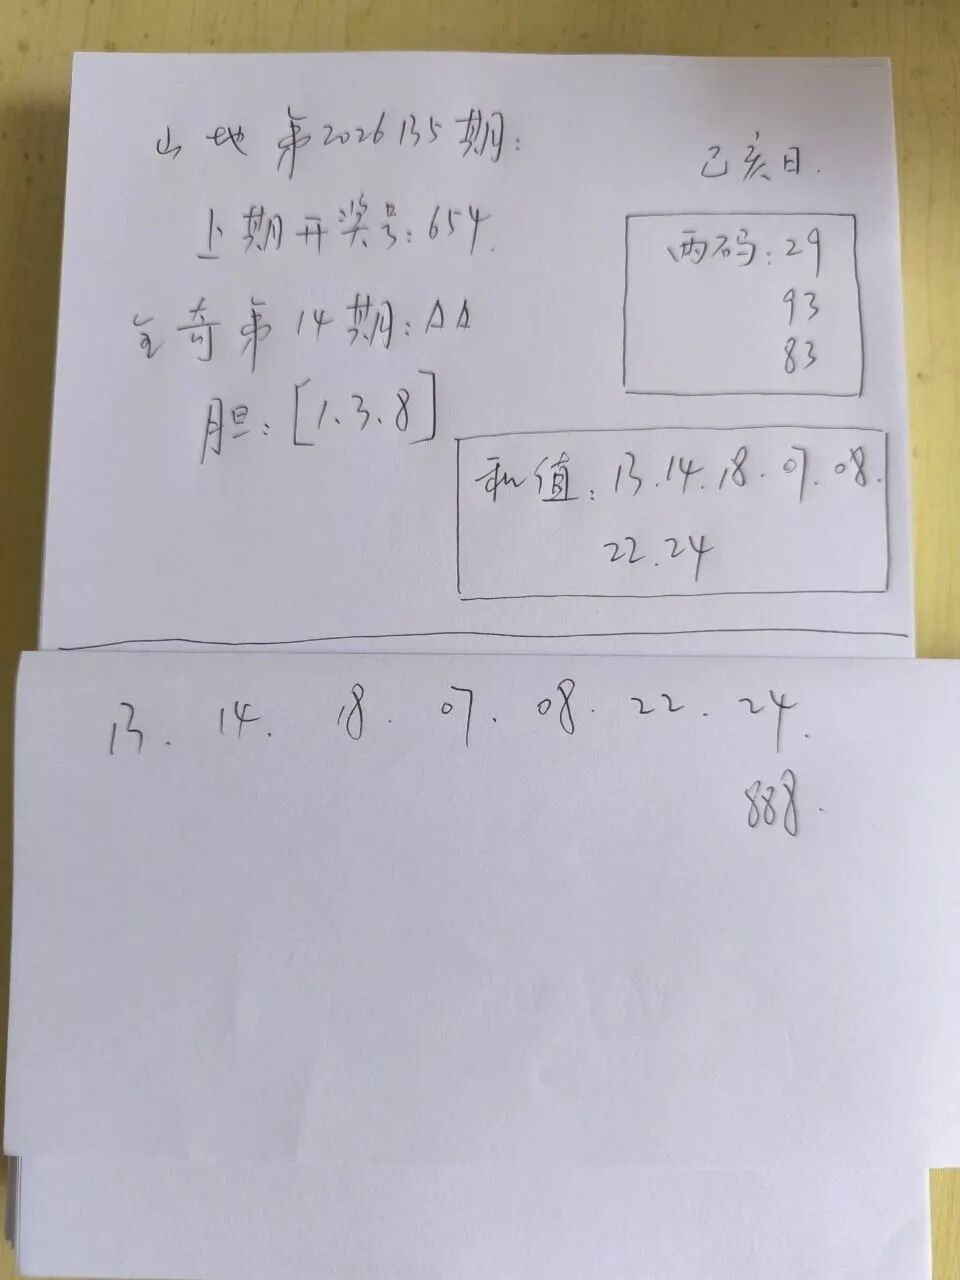 山地第2026135期:
己亥日.
上期开奖号:654.
两码:29
93
83
全奇第14期:△△
胆:[1.3.8]
和值:13.14.18.07.08.
22.24
13. 14. 18. 07. 08. 22. 24.
888.